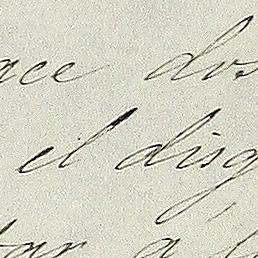 ace dos
el disg
tar á l